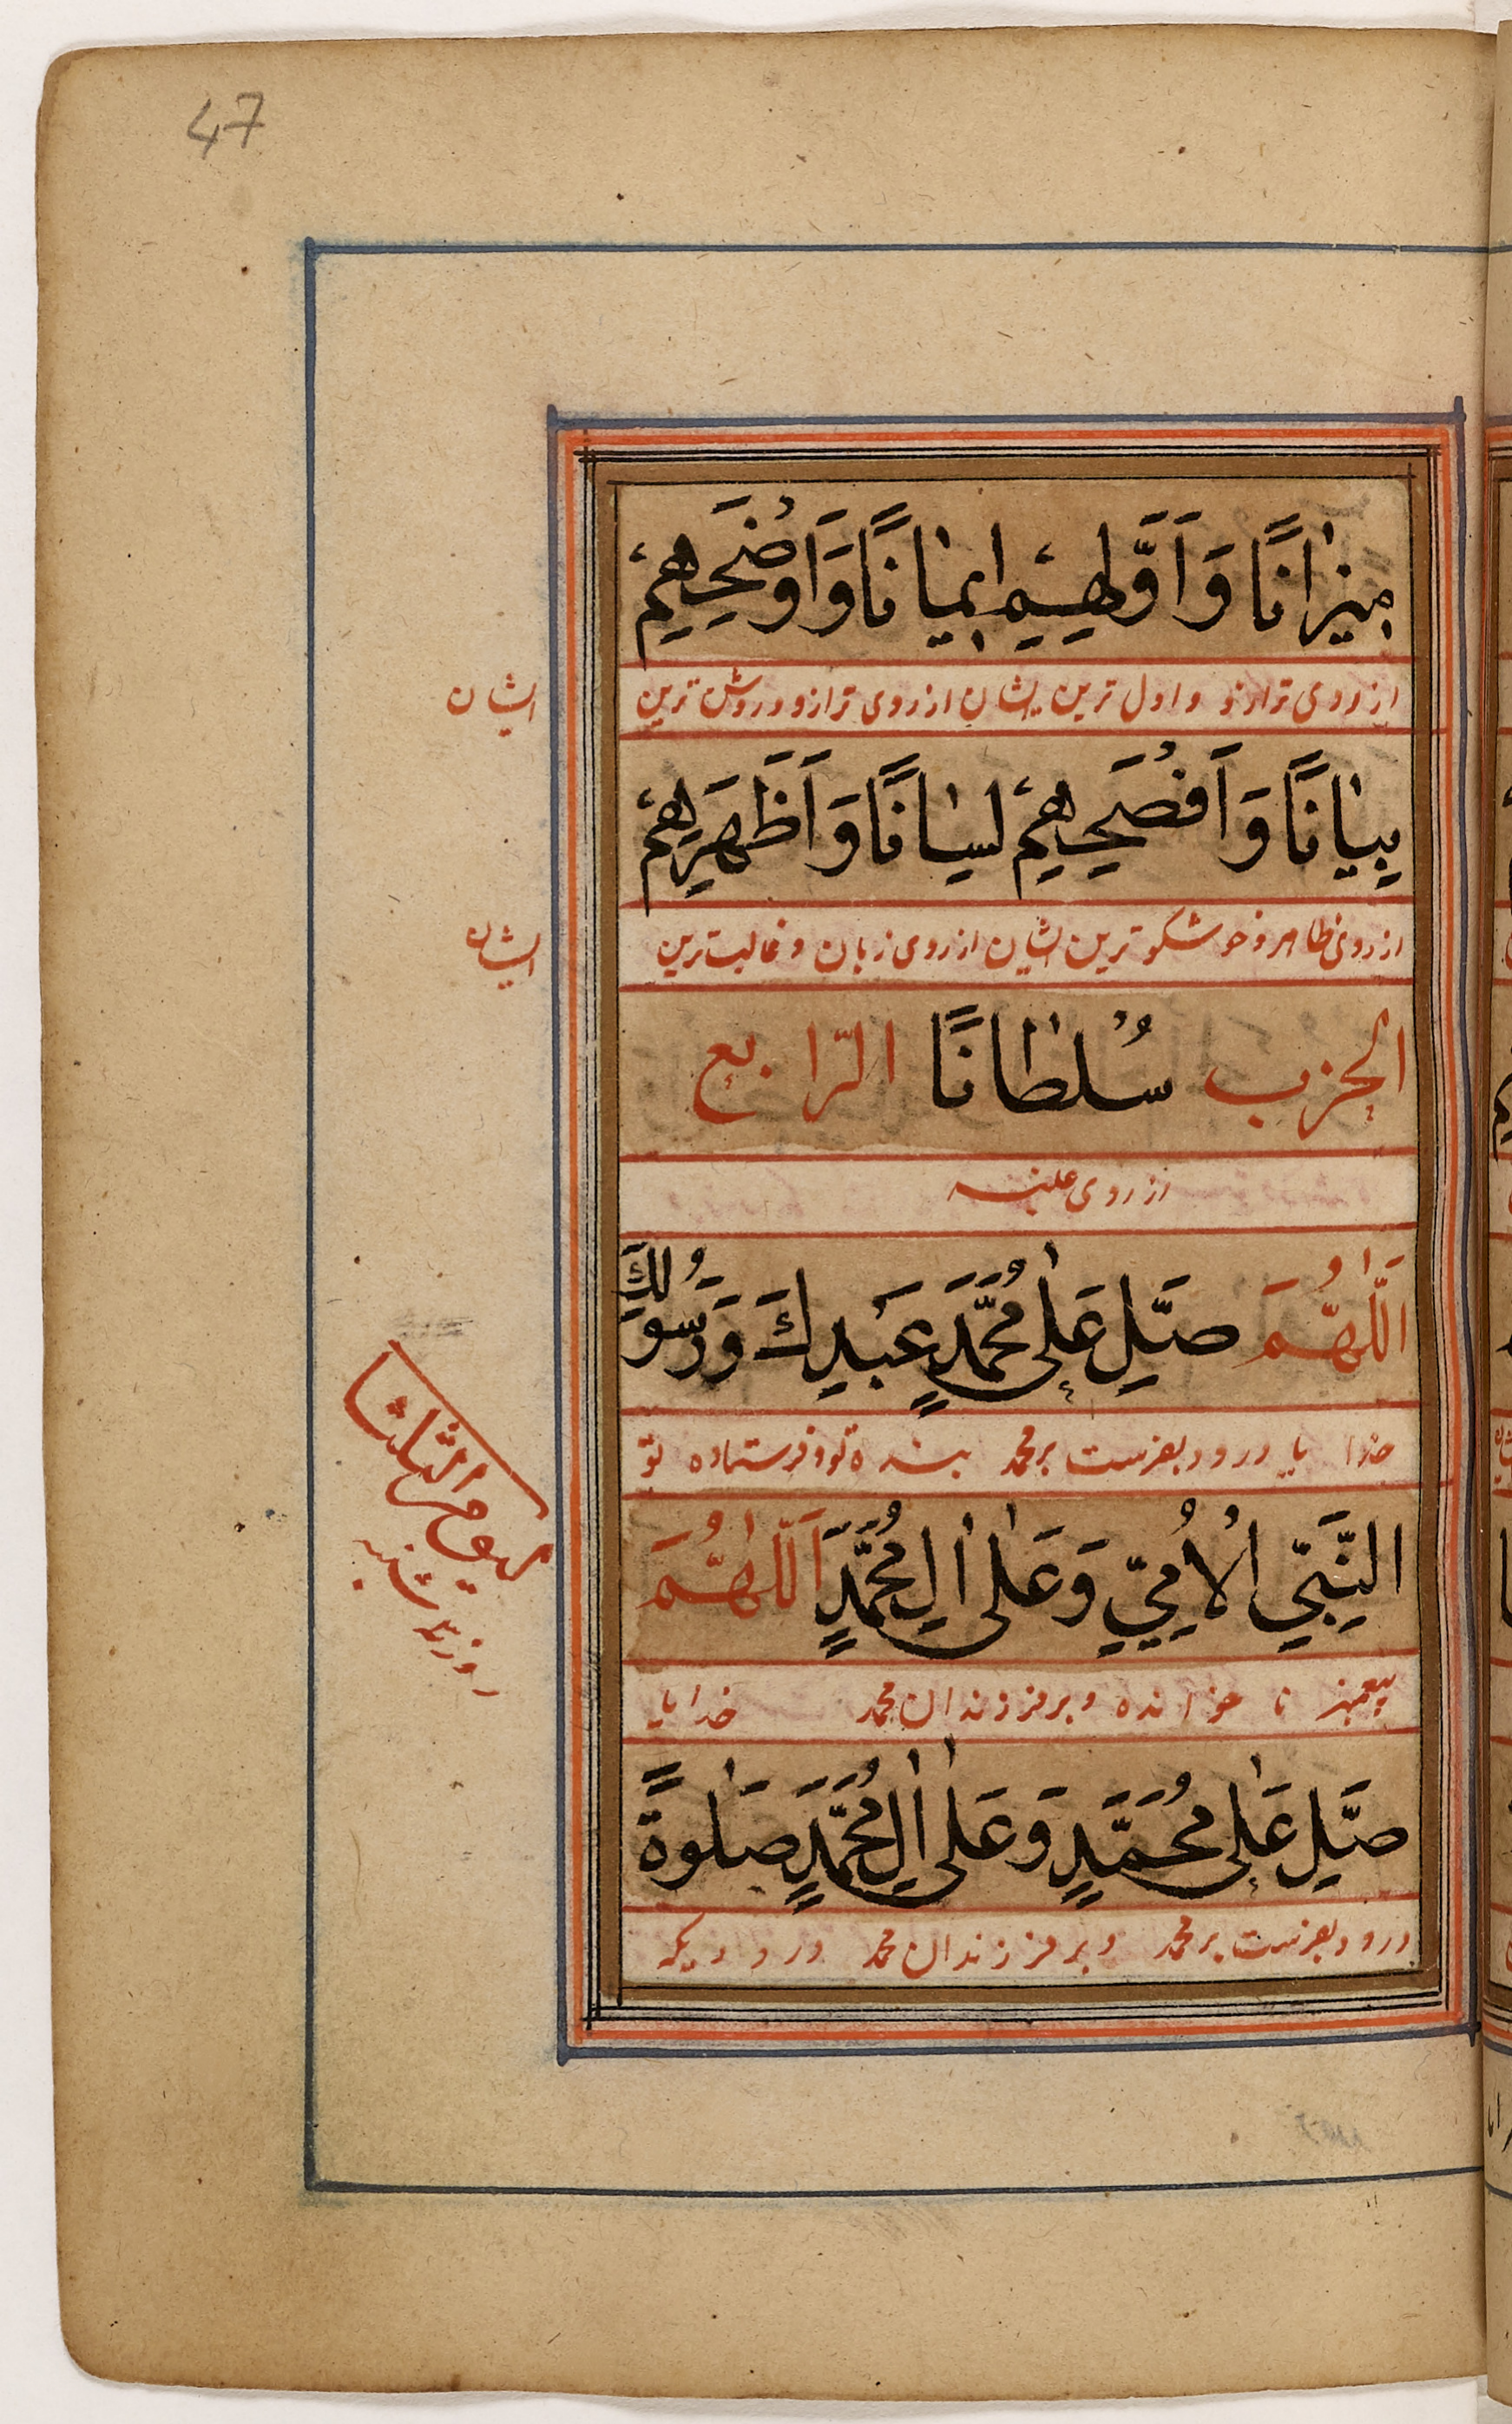 47
مِيزَانًا وَاَوَّلِهِمْ اِيمَانًا وَاَوْضَحِهِمْ
از روی ترازو و اول ترین ایشان از روی ترازو و روشن ترین
ایشان
بَيَانًا وَاَفْصَحِهِمْ لِسَانًا وَاَظْهَرِهِمْ
از روی ظاهر و خوشگو ترین ایشان از روی زبان و غالب ترین
ایشان
الحزب سُلْطَانًا الرّابع
از روی غلبه
اَللّٰهُمَّ صَلِّ عَلٰى مُحَمَّدٍ عَبْدِكَ وَرَسُولِكَ
خدا یا درود بفرست بر محمد بنده تو و فرستاده تو
النَّبِيِّ الْاُمِّيِّ وَعَلٰى اٰلِ مُحَمَّدٍ اَللّٰهُمَّ
پیغمبر نا خوانده و بر فرزندان محمد خدایا
صَلِّ عَلٰى مُحَمَّدٍ وَعَلٰى اٰلِ مُحَمَّدٍ صَلٰوةً
درود بفرست بر محمد و بر فرزندان محمد درودیکه
يوم الثلثا
روز سه شنبه